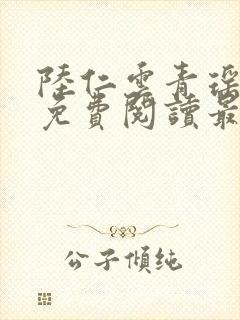 陸仁雲青瑤
免費閱讀最
公子傾純